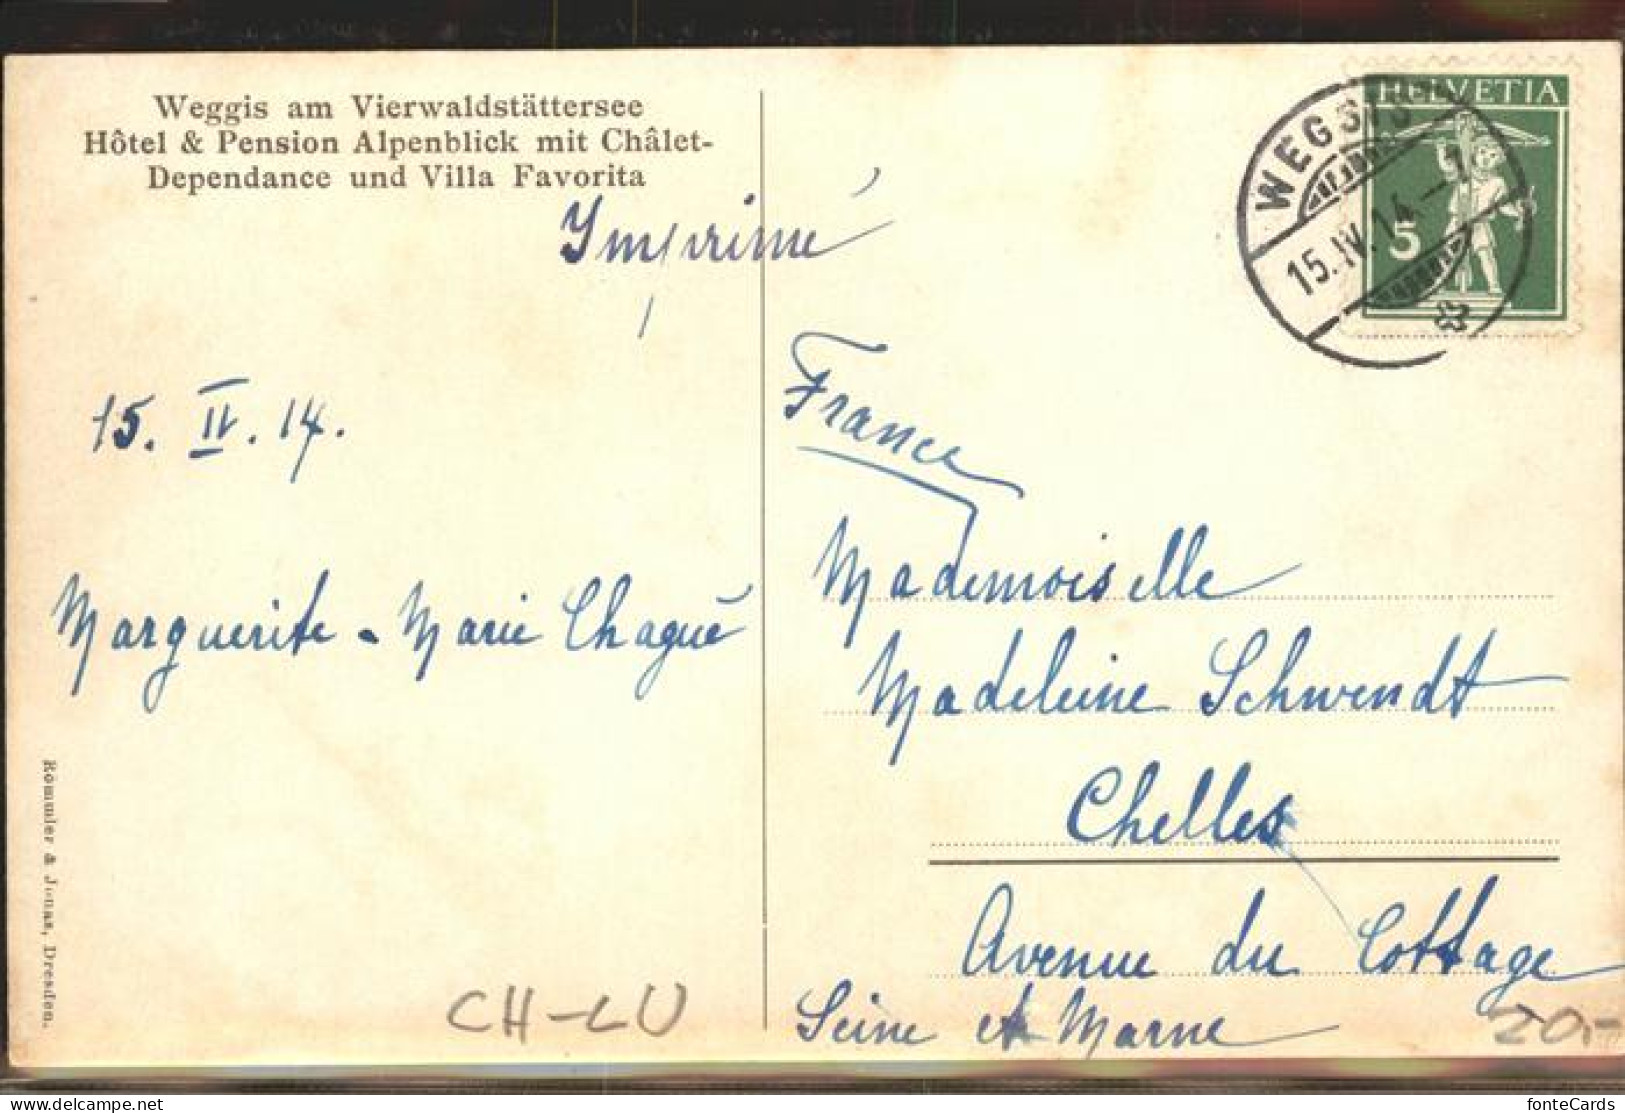 Weggis am Vierwaldstättersee
Hôtel & Pension Alpenblick mit Châlet-
Dependance und Villa Favorita
Imprimé
HELVETIA
5
WEGGIS
15.IV.14.
15. IV. 14.
Marguerite - Marie Chagué
France
Mademoiselle
Madeleine Schwendt
Chelles
Avenue du Cottage
Seine et Marne
Römmler & Jonas, Dresden.
CH-LU
20.-
fonteCards